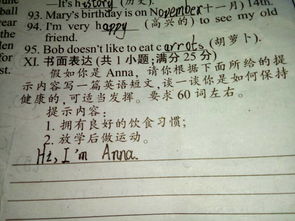 —It's history (历史).
ball 93. Mary's birthday is on November(十一月) 14th.
the 94. I'm very happy (高兴的) to see my old
den friend.
for 95. Bob doesn't like to eat carrots (胡萝卜).
XI. 书面表达 (共 1 小题;满分 25 分)
假如你是 Anna, 请你根据下面所给的提
示内容写一篇英语短文, 谈一谈你是如何保持
健康的, 可适当发挥。要求 60 词左右。
提示内容:
1. 拥有良好的饮食习惯;
2. 放学后做运动。
Hi, I'm Anna.